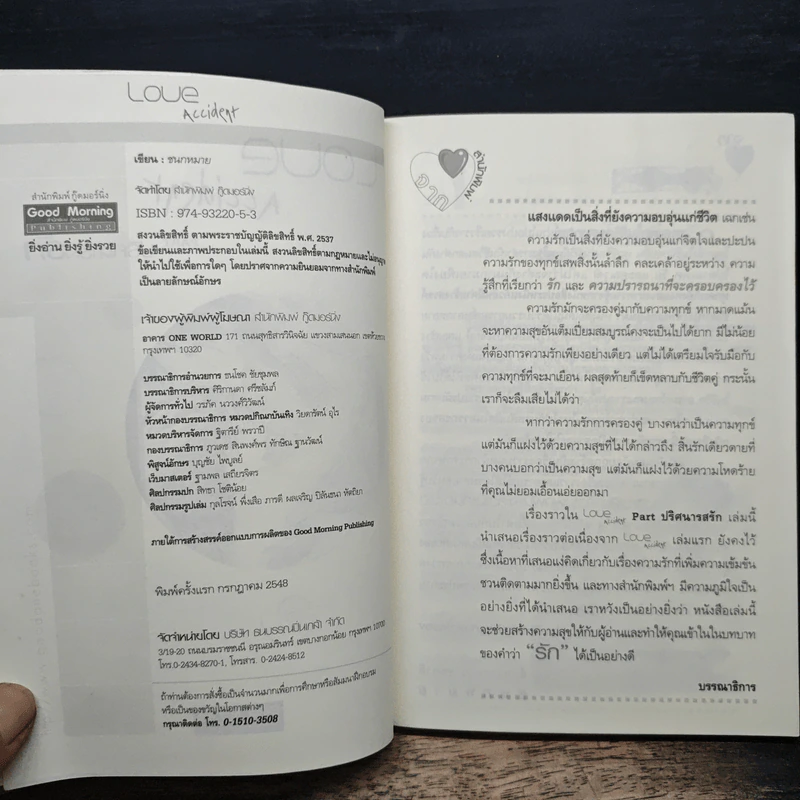 Love
Accident
เขียน : ชนกหมาย
สำนักพิมพ์ กู๊ดมอร์นิ่ง
Good Morning
Publishing
ยิ่งอ่าน ยิ่งรู้ ยิ่งรวย
จัดทำโดย สำนักพิมพ์ กู๊ดมอร์นิ่ง
ISBN : 974-93220-5-3
สงวนลิขสิทธิ์ ตามพระราชบัญญัติลิขสิทธิ์ พ.ศ. 2537
ข้อเขียนและภาพประกอบในเล่มนี้ สงวนลิขสิทธิ์ตามกฎหมายและไม่อนุญาต
ให้นำไปใช้เพื่อการใดๆ โดยปราศจากความยินยอมจากทางสำนักพิมพ์
เป็นลายลักษณ์อักษร
เจ้าของผู้พิมพ์ผู้โฆษณา สำนักพิมพ์ กู๊ดมอร์นิ่ง
อาคาร ONE WORLD 171 ถนนสุทธิสารวินิจฉัย แขวงสามเสนนอก เขตห้วยขวาง
กรุงเทพฯ 10320
บรรณาธิการอำนวยการ ธนโชค ชัยชุมพล
บรรณาธิการบริหาร ศิริกานดา ศรีชลัมภ์
ผู้จัดการทั่วไป วรภัค นววงศ์วิวัฒน์
หัวหน้ากองบรรณาธิการ หมวดปกิณกบันเทิง วิยดารัตน์ ภูไร
หมวดบริหารจัดการ ฐิตารีย์ พรวาปี
กองบรรณาธิการ ภูวเดช สินพงศ์พร ทักษิณ ฐานวัฒน์
พิสูจน์อักษร บุญชัย ไพบูลย์
เว็บมาสเตอร์ ฐามพล เสถียรจิตร
ศิลปกรรมปก สิทธา โชติน้อย
ศิลปกรรมรูปเล่ม กุลโรจน์ พึ่งเสือ ภารดี ผลเจริญ ปิลันธนา หัตถิยา
ภายใต้การสร้างสรรค์ออกแบบการผลิตของ Good Morning Publishing
พิมพ์ครั้งแรก กรกฎาคม 2548
จัดจำหน่ายโดย บริษัท ธนบรรณปิ่นเกล้า จำกัด
3/19-20 ถนนบรมราชชนนี อรุณอมรินทร์ เขตบางกอกน้อย กรุงเทพฯ 10700
โทร.0-2434-8270-1, โทรสาร. 0-2424-8512
ถ้าท่านต้องการสั่งซื้อเป็นจำนวนมากเพื่อการศึกษาหรือสัมมนาฝึกอบรม
หรือเป็นของขวัญในโอกาสต่างๆ
กรุณาติดต่อ โทร. 0-1510-3508
จาก
สำนักพิมพ์
แสงแดดเป็นสิ่งที่ยังความอบอุ่นแก่ชีวิต เฉกเช่น
ความรักเป็นสิ่งที่ยังความอบอุ่นแก่จิตใจและปะปน
ความรักของทุกข์เสพสิ่งนั้นล้ำลึก คละเคล้าอยู่ระหว่าง ความ
รู้สึกที่เรียกว่า รัก และ ความปรารถนาที่จะครอบครองไว้
ความรักมักจะครองคู่มากับความทุกข์ หากมาดแม้น
จะหาความสุขอันเต็มเปี่ยมสมบูรณ์คงจะเป็นไปได้ยาก มีไม่น้อย
ที่ต้องการความรักเพียงอย่างเดียว แต่ไม่ได้เตรียมใจรับมือกับ
ความทุกข์ที่จะมาเยือน ผลสุดท้ายก็เข็ดหลาบกับชีวิตคู่ กระนั้น
เราก็จะลืมเสียไม่ได้ว่า
หากว่าความรักการครองคู่ บางคนว่าเป็นความทุกข์
แต่มันก็แฝงไว้ด้วยความสุขที่ไม่ได้กล่าวถึง สิ้นรักเดียวดายที่
บางคนบอกว่าเป็นความสุข แต่มันก็แฝงไว้ด้วยความโหดร้าย
ที่คุณไม่ยอมเอื้อนเอ่ยออกมา
เรื่องราวใน Love Accident Part ปริศนารสรัก เล่มนี้
นำเสนอเรื่องราวต่อเนื่องจาก Love Accident เล่มแรก ยังคงไว้
ซึ่งเนื้อหาที่เสนอแง่คิดเกี่ยวกับเรื่องความรักที่เพิ่มความเข้มข้น
ชวนติดตามมากยิ่งขึ้น และทางสำนักพิมพ์ฯ มีความภูมิใจเป็น
อย่างยิ่งที่ได้นำเสนอ เราหวังเป็นอย่างยิ่งว่า หนังสือเล่มนี้
จะช่วยสร้างความสุขให้กับผู้อ่านและทำให้คุณเข้าในในบทบาท
ของคำว่า “รัก” ได้เป็นอย่างดี
บรรณาธิการ